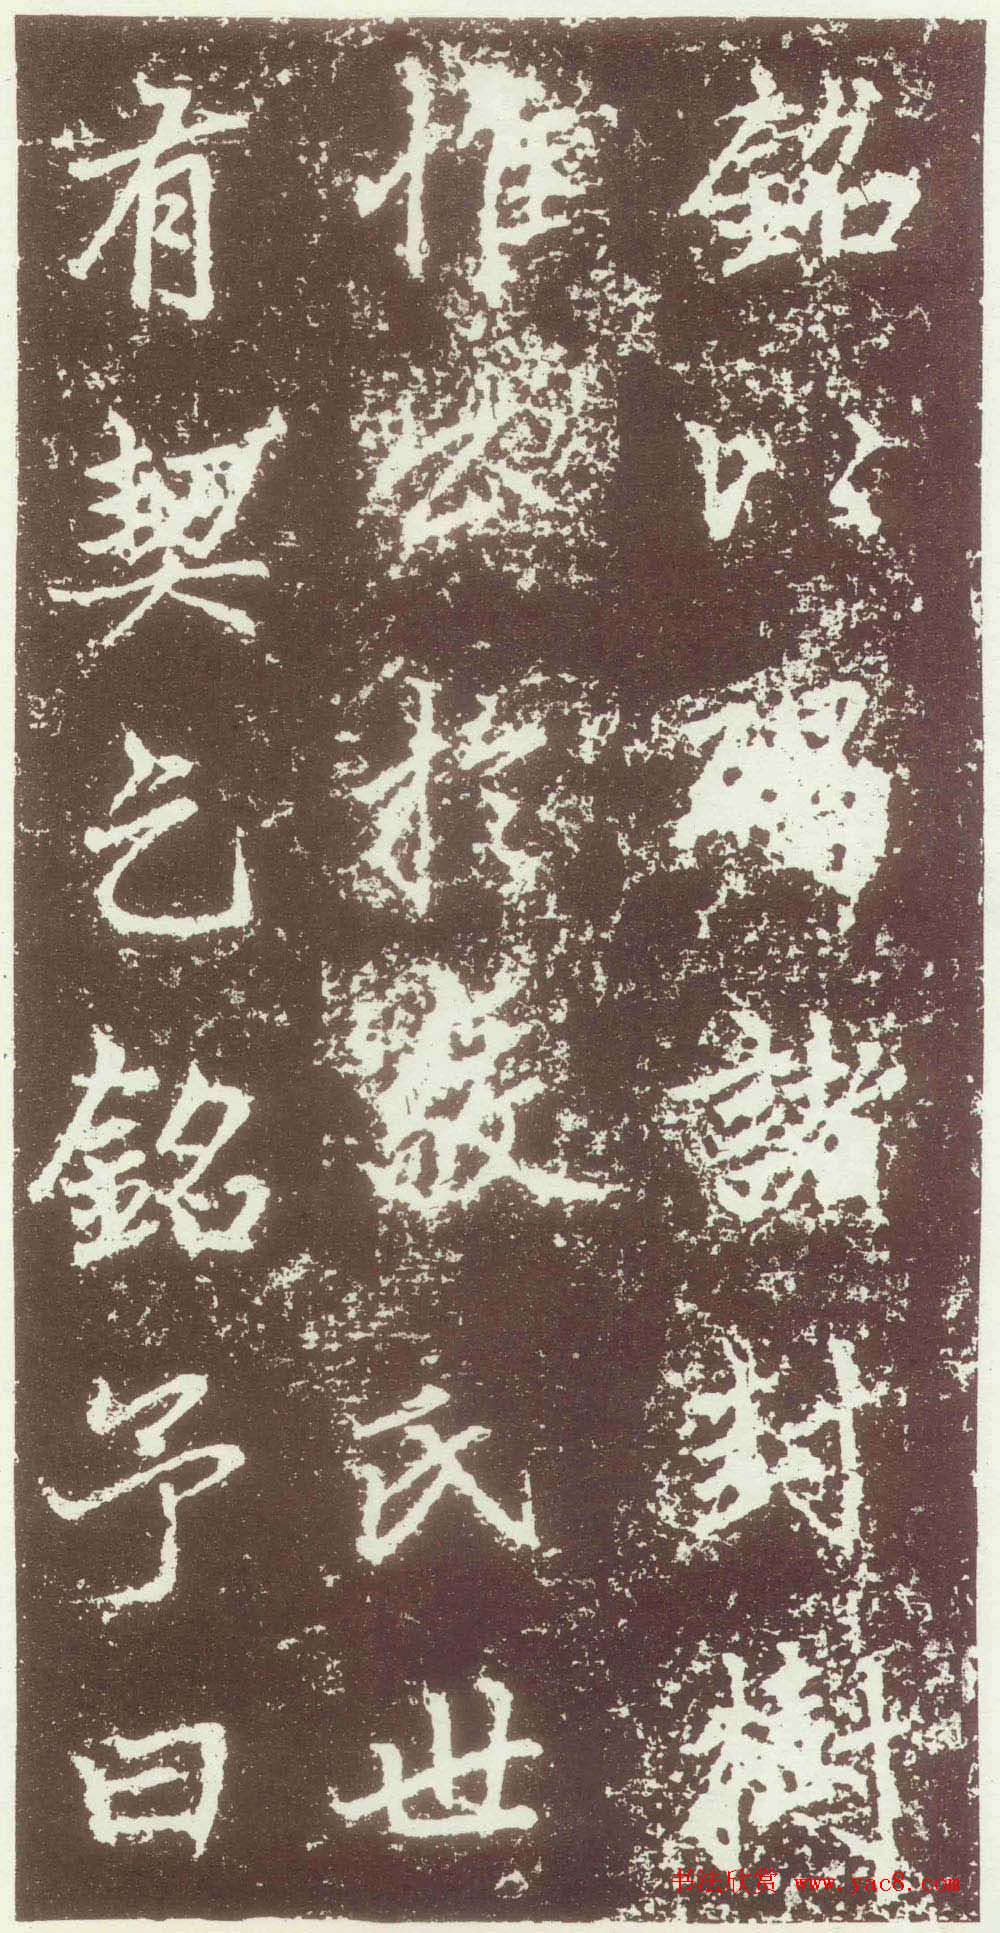 銘以碣諸封樹
惟扵嚴氏世
有契乞銘予曰
书法欣赏 www.yac8.com